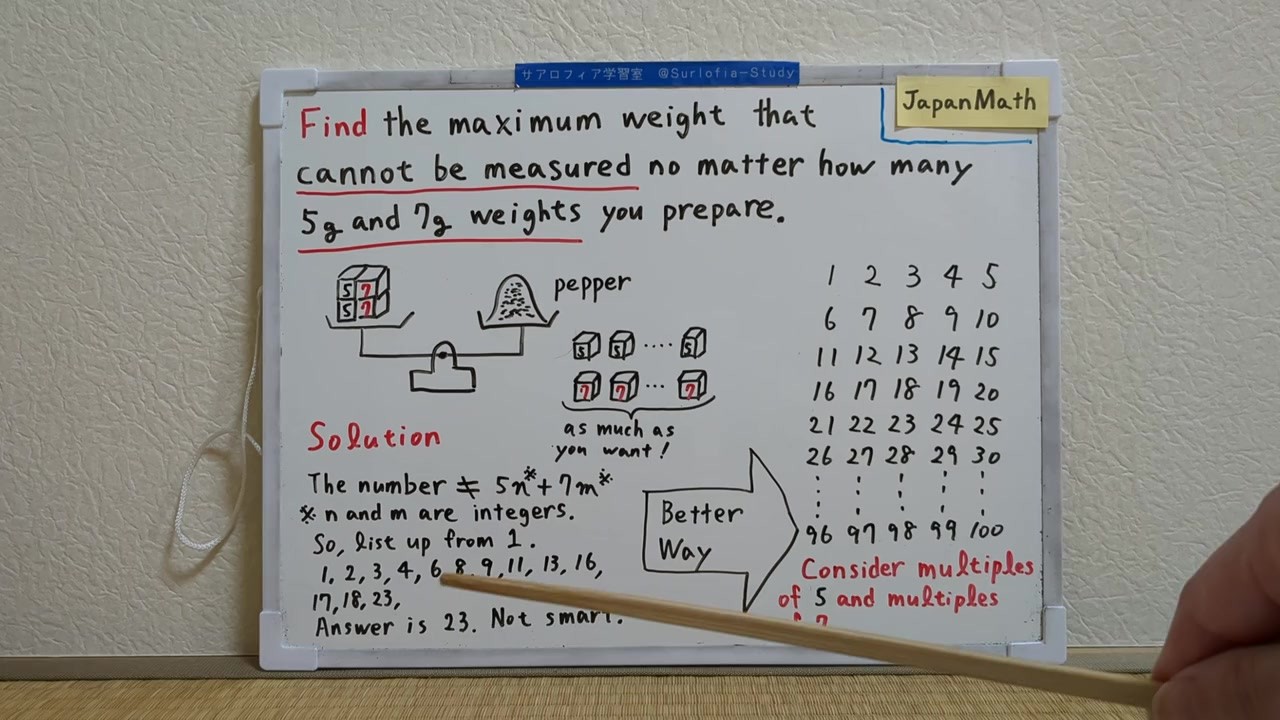 サアロフィア学習室 @Surlofia-Study
JapanMath
Find the maximum weight that
cannot be measured no matter how many
5g and 7g weights you prepare.
5 7
5 7
pepper
5 5 .... 5
7 7 ... 7
as much as
you want!
Solution
The number ≠ 5n※+7m※
※ n and m are integers.
So, list up from 1.
1, 2, 3, 4, 6, 8, 9, 11, 13, 16,
17, 18, 23,
Answer is 23. Not smart.
Better
Way
1 2 3 4 5
6 7 8 9 10
11 12 13 14 15
16 17 18 19 20
21 22 23 24 25
26 27 28 29 30
96 97 98 99 100
Consider multiples
of 5 and multiples